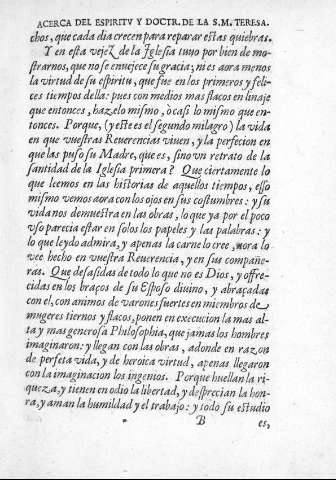 ACERCA DEL ESPIRITV Y DOCTR. DE LA S.M. TERESA.
chos, que cada dia crecen para reparar estas quiebras.
Y en esta vejez de la Iglesia tuuo por bien de mo-
strarnos, que no se enuejece su gracia; ni es aora menos
la virtud de su espiritu, que fue en los primeros y feli-
ces tiempos della: pues con medios mas flacos en linaje
que entonces, haze lo mismo, ò casi lo mismo que en-
tonces. Porque, (y este es el segundo milagro) la vida
en que vuestras Reuerencias viuen, y la perfecion en
que las puso su Madre, que es, sino vn retrato de la
santidad de la Iglesia primera? Que ciertamente lo
que leemos en las historias de aquellos tiempos, esso
mismo vemos aora con los ojos en sus costumbres: y su
vida nos demuestra en las obras, lo que ya por el poco
vso parecia estar en solos los papeles y las palabras: y
lo que leydo admira, y apenas la carne lo cree, aora lo
vee hecho en vuestra Reuerencia, y en sus compañe-
ras. Que desasidas de todo lo que no es Dios, y offre-
cidas en los braços de su Esposo diuino, y abraçadas
con el, con animos de varones fuertes en miembros de
mugeres tiernos y flacos, ponen en execucion la mas al-
ta y mas generosa Philosophia, que jamas los hombres
imaginaron: y llegan con las obras, adonde en razon
de perfeta vida, y de heroica virtud, apenas llegaron
con la imaginacion los ingenios. Porque huellan la ri-
queza, y tienen en odio la libertad, y desprecian la hon-
ra, y aman la humildad y el trabajo: y todo su estudio
B es,